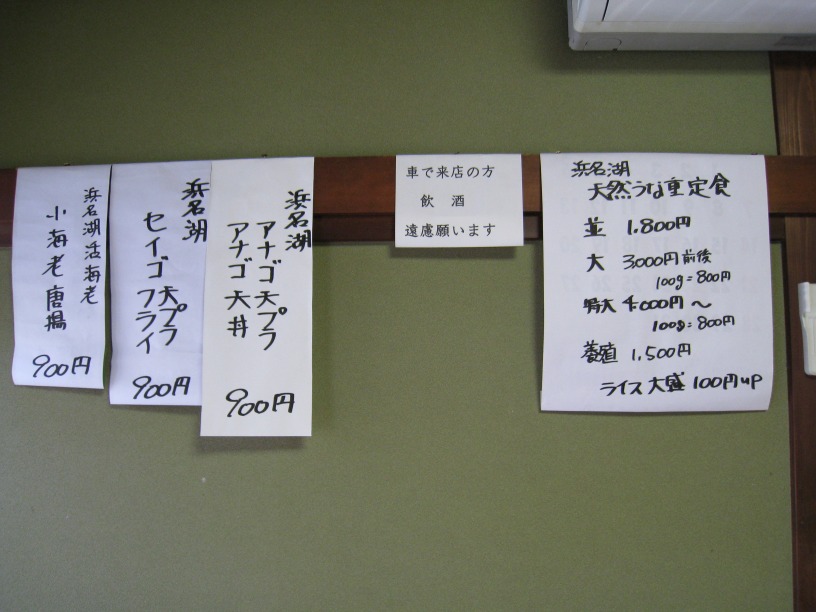 浜名湖活海老
小海老唐揚
900円
浜名湖
セイゴ天プラ
フライ
900円
浜名湖
アナゴ天プラ
アナゴ天丼
900円
車で来店の方
飲酒
遠慮願います
浜名湖
天然うな重定食
並 1,800円
大 3,000円前後
100g=800円
特大 4,000円〜
100g=800円
養殖 1,500円
ライス大盛100円up